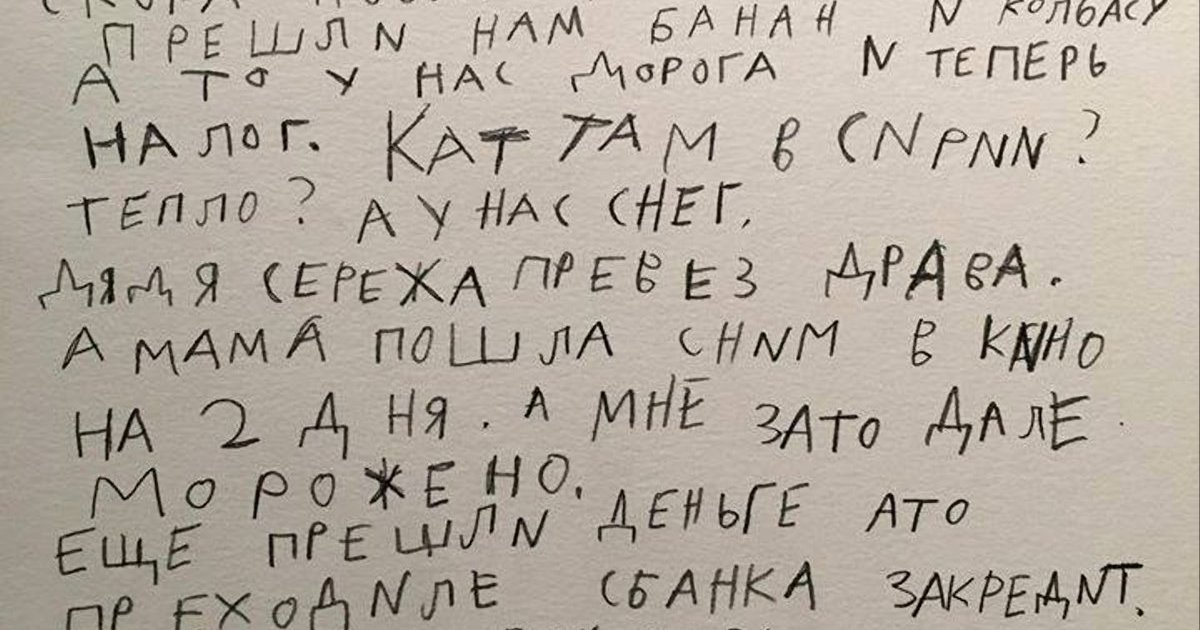 ПРЕШЛИ НАМ БАНАН И КОЛБАСУ
А ТО У НАС ДОРОГА И ТЕПЕРЬ
НАЛОГ. КАТ ТАМ В СИРИИ?
ТЕПЛО? А У НАС СНЕГ.
ДЯДЯ СЕРЕЖА ПРЕВЕЗ ДРАВА.
А МАМА ПОШЛА СНИМ В КИНО
НА 2 ДНЯ. А МНЕ ЗАТО ДАЛЕ
МОРОЖЕНО.
ЕЩЕ ПРЕШЛИ ДЕНЬГЕ АТО
ПРЕХОДИЛЕ СБАНКА ЗАКРЕДИТ.